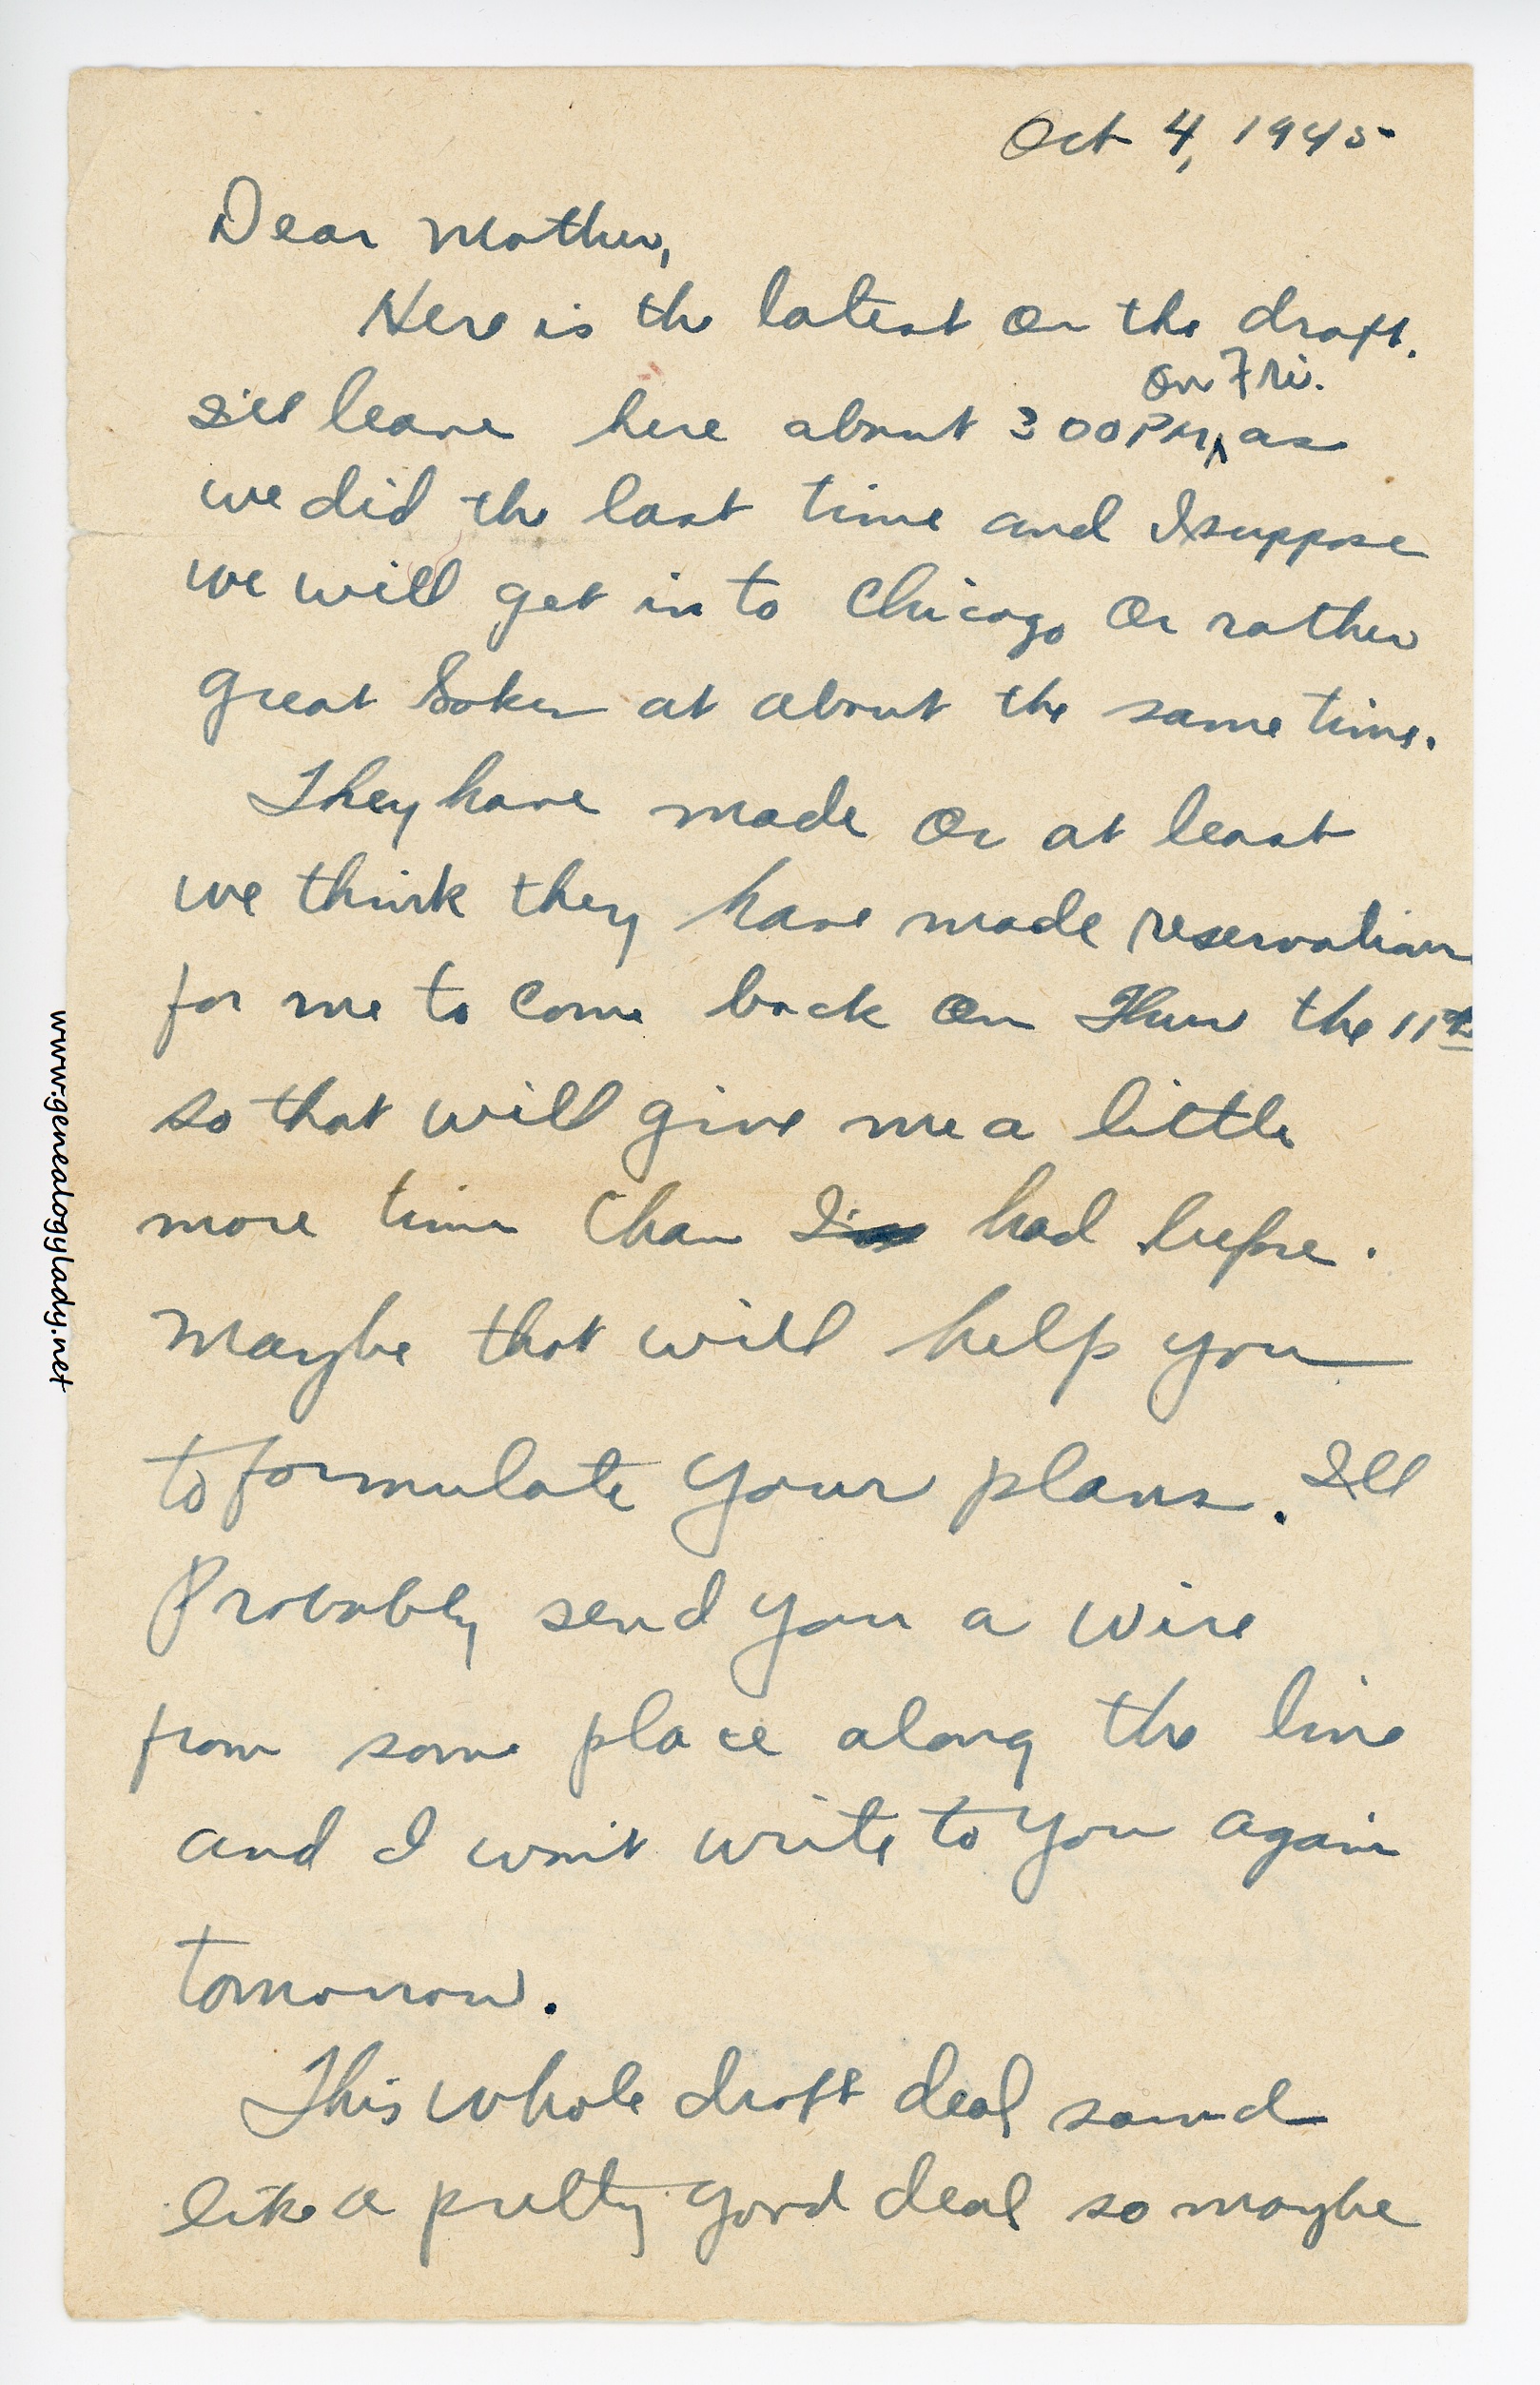 Oct 4, 1945
Dear Mother,
Here is the latest on the draft.
on Fri.
I'll leave here about 300PM, as
we did the last time and I suppose
we will get in to Chicago or rather
Great Lakes at about the same time.
They have made or at least
we think they have made reservations
for me to come back on Thurs the 11th
so that will give me a little
more time than I had before.
Maybe that will help you
to formulate your plans. I'll
Probably send you a wire
from some place along the line
and I won't write to you again
tomorrow.
This whole draft deal sound
like a pretty good deal so maybe
www.genealogylady.net